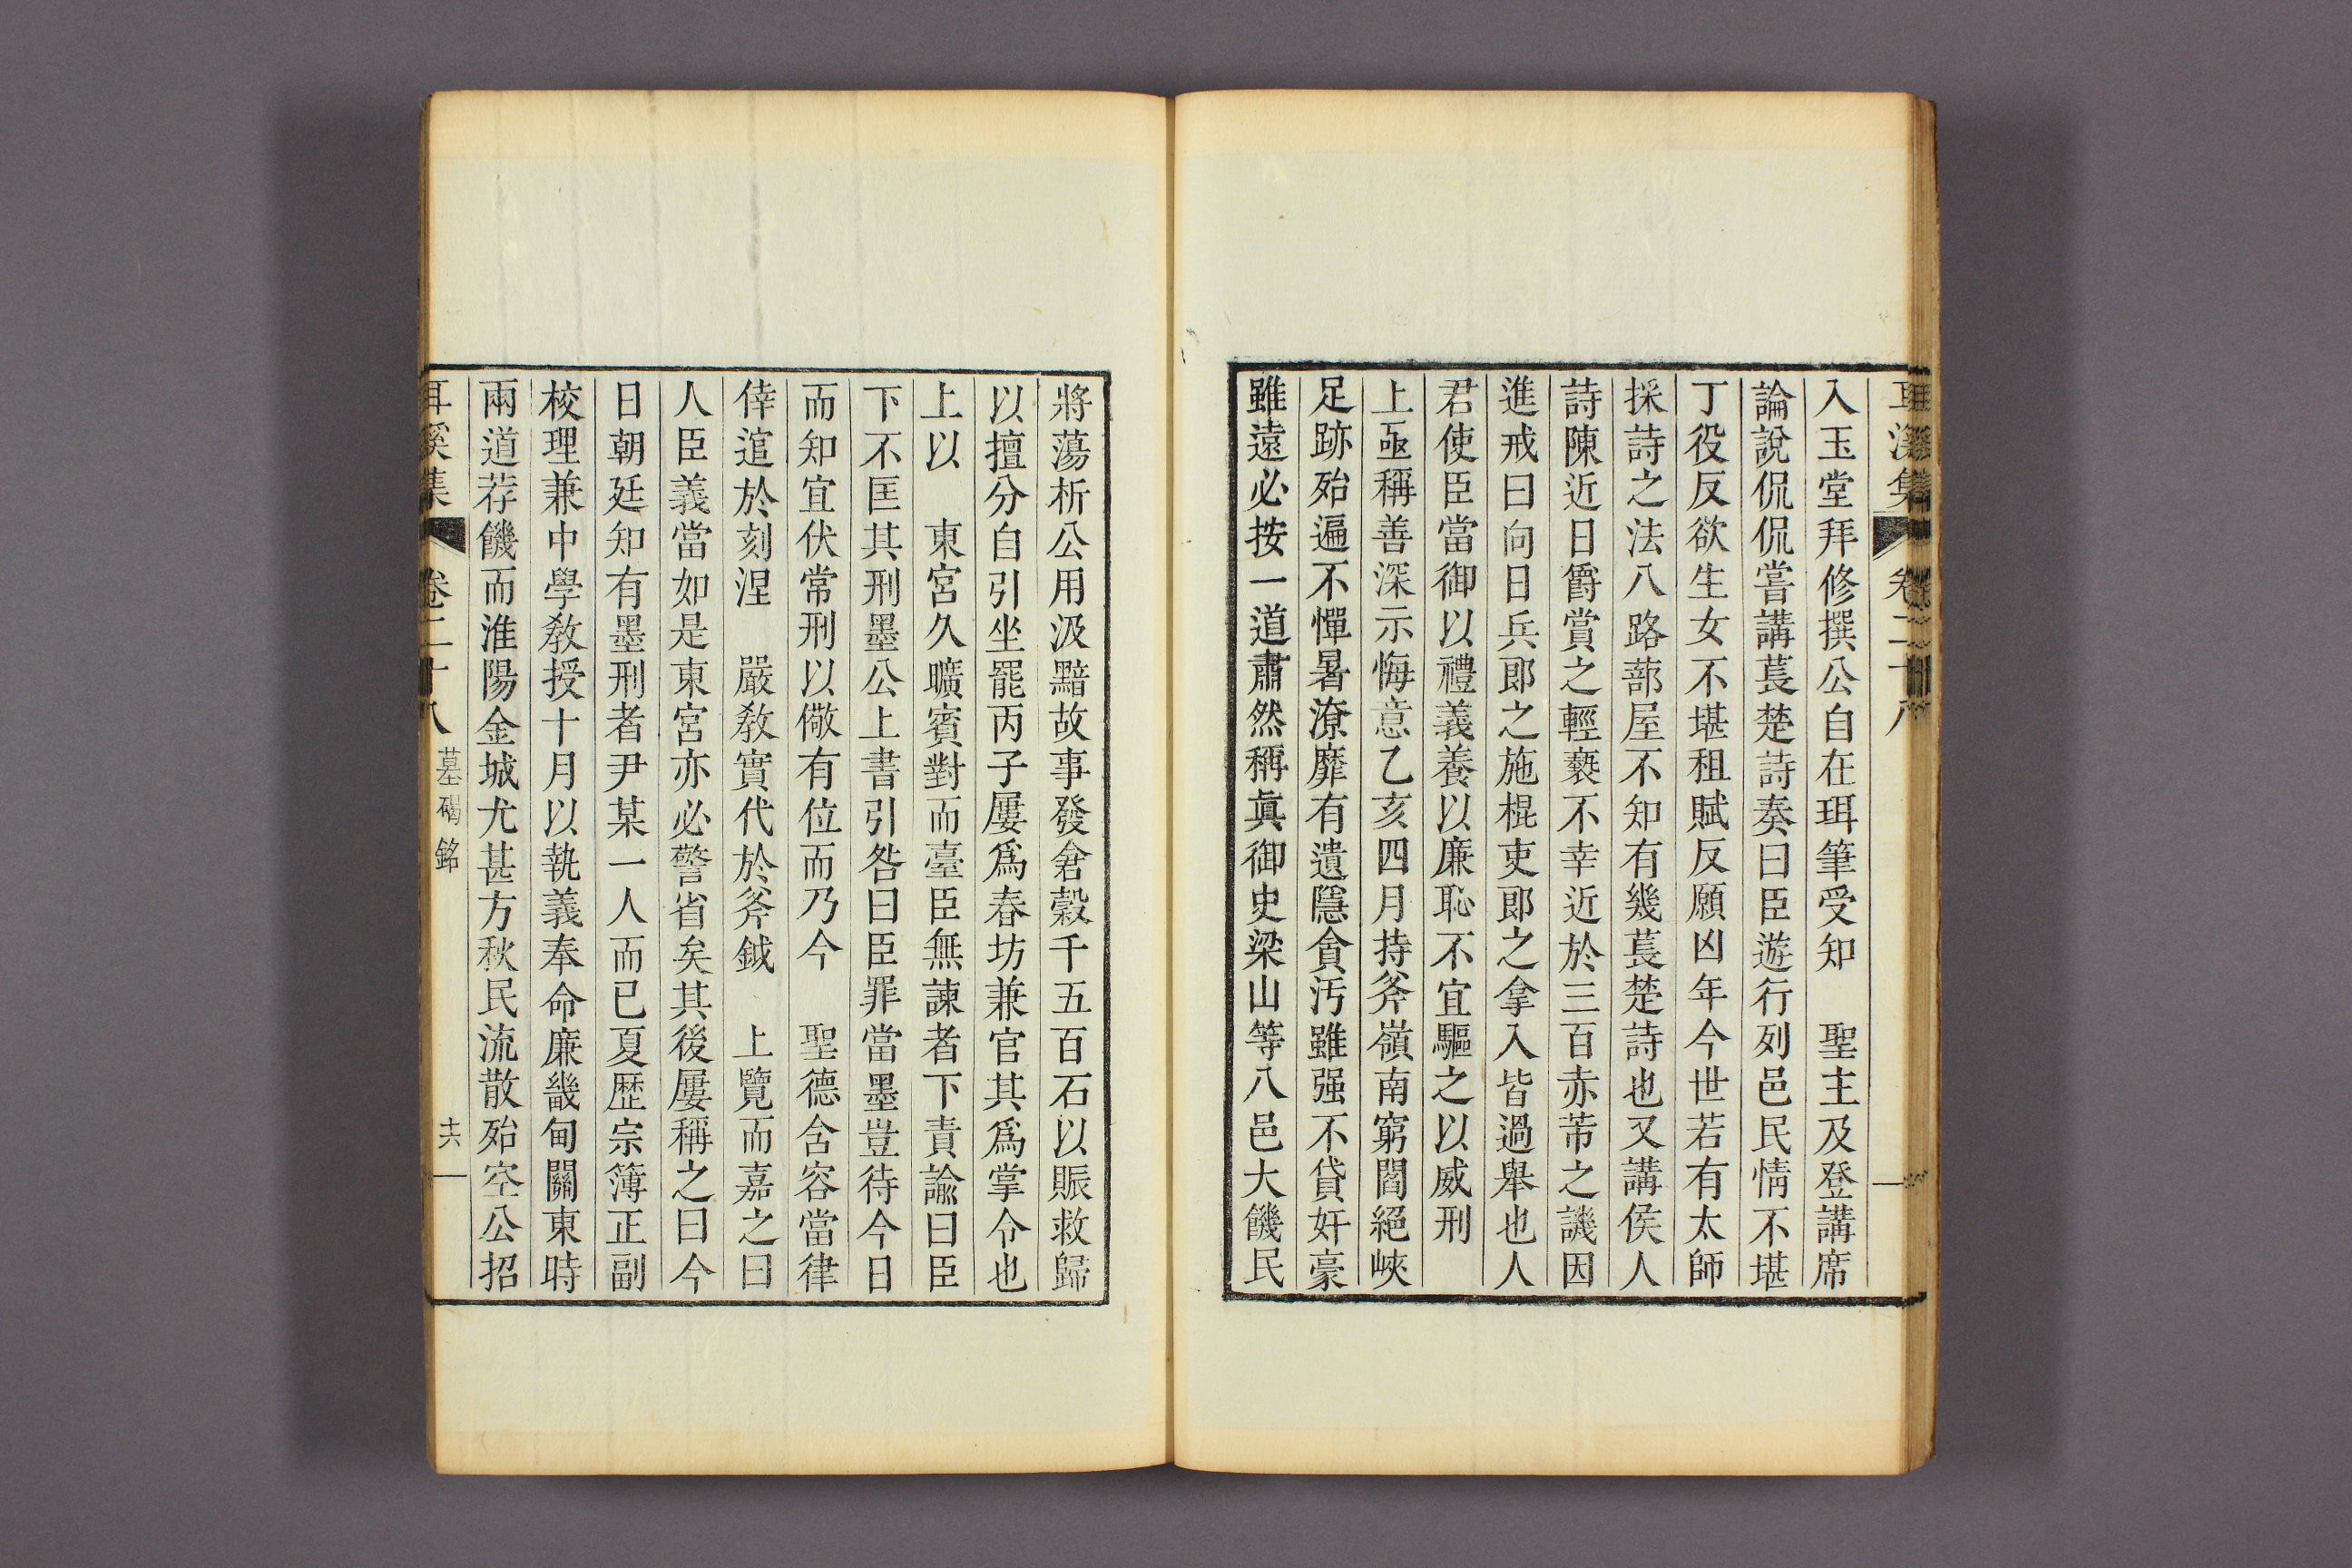 耳溪集 卷二十八
入玉堂拜修撰公自在珥筆受知 聖主及登講席
論說侃侃嘗講萇楚詩奏曰臣遊行列邑民情不堪
丁役反欲生女不堪租賦反願凶年今世若有太師
採詩之法八路蔀屋不知有幾萇楚詩也又講侯人
詩陳近日爵賞之輕褻不幸近於三百赤芾之譏因
進戒曰向日兵郎之施棍吏郎之拿入皆過舉也人
君使臣當御以禮義養以廉恥不宜驅之以威刑
上亟稱善深示悔意乙亥四月持斧嶺南窮閻絕峽
足跡殆遍不憚暑潦靡有遺隱貪汚雖强不貸奸豪
雖遠必按一道肅然稱眞御史梁山等八邑大饑民
將蕩析公用汲黯故事發倉穀千五百石以賑救歸
以擅分自引坐罷丙子屢爲春坊兼官其爲掌令也
上以 東宮久曠賓對而臺臣無諫者下責諭曰臣
下不匡其刑墨公上書引咎曰臣罪當墨豈待今日
而知宜伏常刑以儆有位而乃今 聖德含容當律
倖逭於刻涅 嚴敎實代於斧鉞 上覽而嘉之曰
人臣義當如是東宮亦必警省矣其後屢稱之曰今
日朝廷知有墨刑者尹某一人而已夏歷宗簿正副
校理兼中學敎授十月以執義奉命廉畿甸關東時
兩道荐饑而淮陽金城尤甚方秋民流散殆空公招
耳溪集 卷二十八 墓碣銘 十六